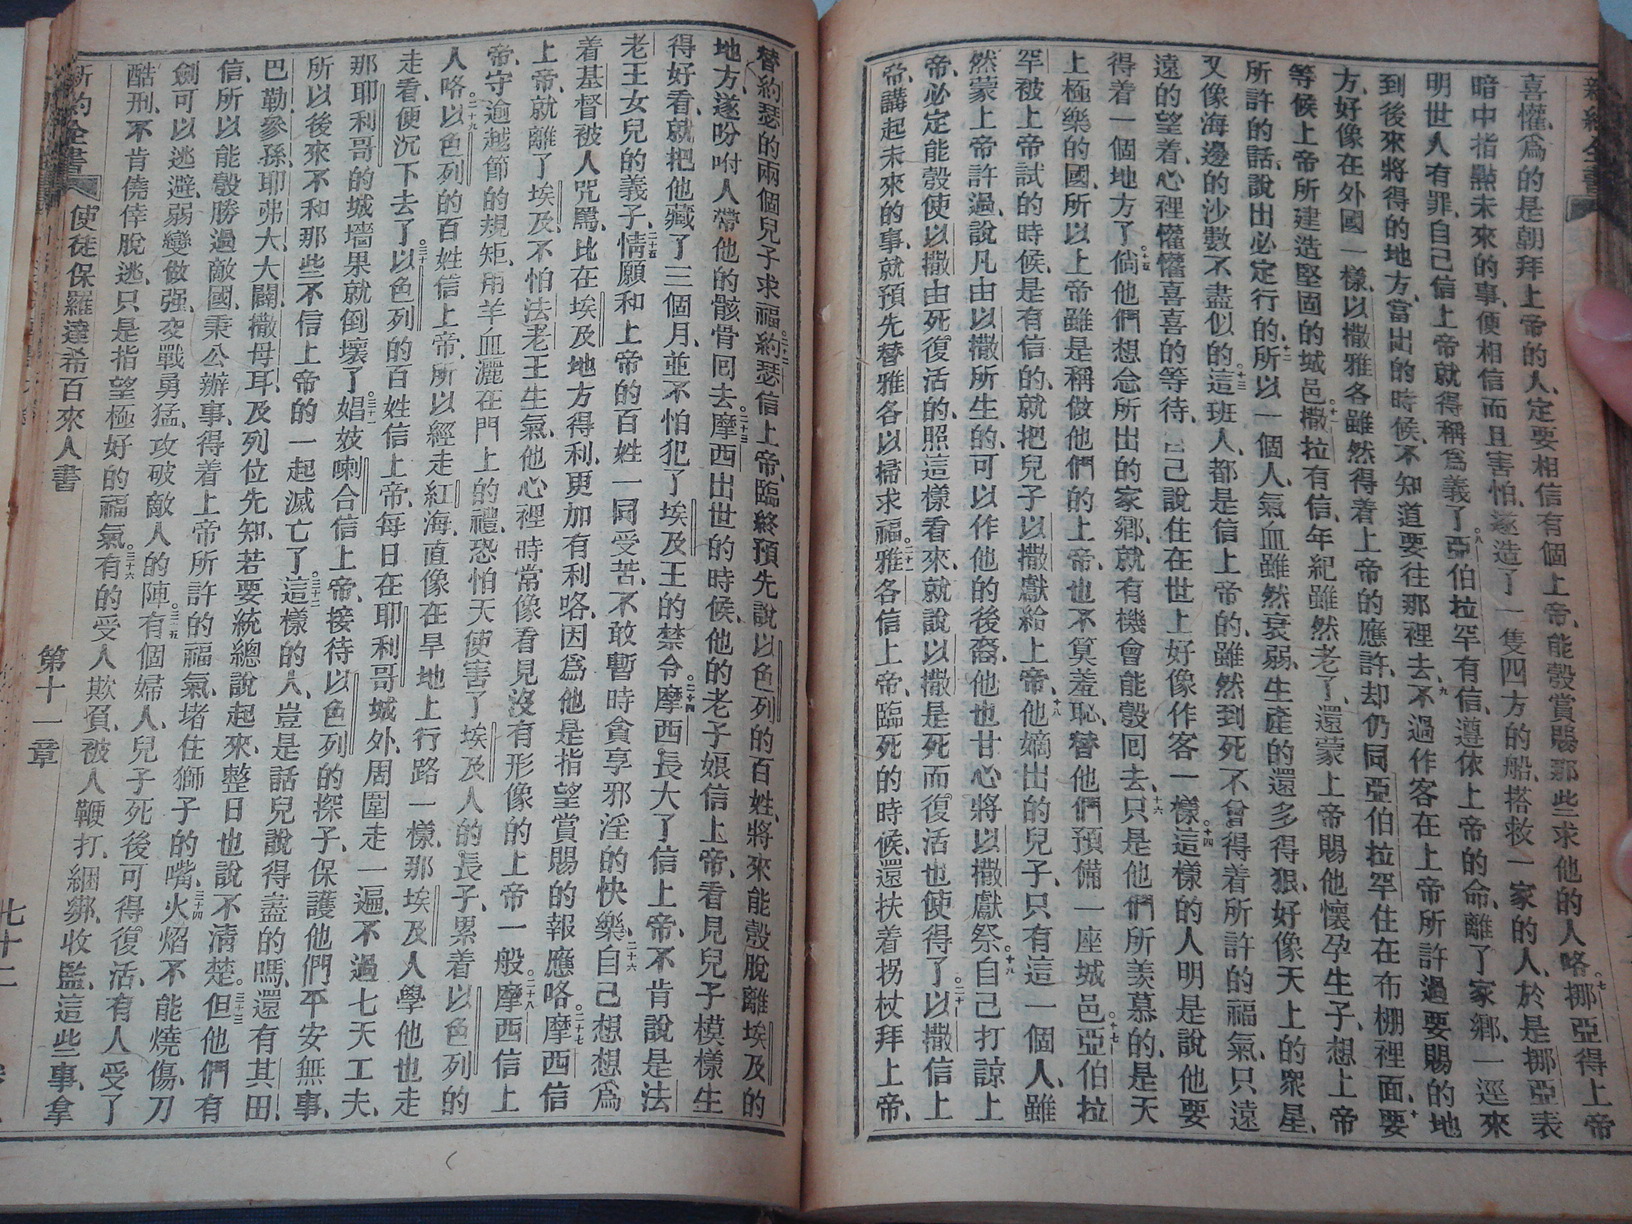 新約全書
喜懽、爲的是朝拜上帝的人、定要相信有個上帝、能彀賞賜那些求他的人咯。七挪亞得上帝
暗中指點未來的事、便相信而且害怕、遂造了一隻四方的船、搭救一家的人、於是挪亞表
明世人有罪、自己信上帝就得稱爲義了。八亞伯拉罕有信、遵依上帝的命、離了家鄉、一逕來
到後來將得的地方、當出的時候、不知道要往那裡去、九不過作客在上帝所許過要賜的地
方、好像在外國一樣、以撒雅各雖然得着上帝的應許、却仍同亞伯拉罕住在布棚裡面、十要
等候上帝所建造堅固的城邑。十一撒拉有信、年紀雖然老了、還蒙上帝賜他懷孕生子、想上帝
所許的話、說出必定行的、十二所以一個人、氣血雖然衰弱、生產的還多得狠、好像天上的衆星、
又像海邊的沙、數不盡似的。十三這班人、都是信上帝的、雖然到死不曾得着所許的福氣、只遠
遠的望着、心裡懽懽喜喜的等待、自己說住在世上、好像作客一樣。十四這樣的人、明是說他要
得着一個地方了。十五倘他們想念所出的家鄉、就有機會能彀回去、十六只是他們所羡慕的、是天
上極樂的國、所以上帝雖是稱做他們的上帝、也不算羞恥、替他們預備一座城邑。十七亞伯拉
罕被上帝試的時候、是有信的、就把兒子以撒獻給上帝、十八他嫡出的兒子、只有這一個人、雖
然蒙上帝許過、說凡由以撒所生的、可以作他的後裔、他也甘心將以撒獻祭。十九自己打諒上
帝、必定能彀使以撒由死復活的、照這樣看來、就說以撒是死而復活、也使得了。二十以撒信上
帝、講起未來的事、就預先替雅各以掃求福。二十一雅各信上帝、臨死的時候、還扶着拐杖拜上帝、
替約瑟的兩個兒子求福。二十二約瑟信上帝、臨終預先說以色列的百姓、將來能彀脫離埃及的
地方、遂吩咐人帶他的骸骨回去。二十三摩西出世的時候、他的老子娘信上帝、看見兒子模樣生
得好看、就把他藏了三個月、並不怕犯了埃及王的禁令。二十四摩西長大了信上帝、不肯說是法
老王女兒的義子、二十五情願和上帝的百姓一同受苦、不敢暫時貪享邪淫的快樂、二十六自己想想爲
着基督被人咒罵、比在埃及地方得利、更加有利咯、因爲他是指望賞賜的報應咯。二十七摩西信
上帝、就離了埃及、不怕法老王生氣、他心裡時常像看見沒有形像的上帝一般。二十八摩西信上
帝、守逾越節的規矩、用羊血灑在門上的禮、恐怕天使害了埃及人的長子、累着以色列的
人咯。二十九以色列的百姓信上帝、所以經走紅海、直像在旱地上行路一樣、那埃及人學他也走
走看、便沉下去了。三十以色列的百姓信上帝、每日在耶利哥城外周圍走一遍、不過七天工夫、
那耶利哥的城墻果就倒壞了。三十一娼妓喇合信上帝、接待以色列的探子、保護他們平安無事、
所以後來不和那些不信上帝的一起滅亡了。三十二這樣的人、豈是話兒說得盡的嗎、還有其田、
巴勒、參孫、耶弗大、大闢、撒母耳、及列位先知、若要統總說起來、整日也說不清楚。三十三但他們有
信、所以能彀勝過敵國、秉公辦事、得着上帝所許的福氣、堵住獅子的嘴、三十四火熖不能燒傷、刀
劍可以逃避、弱變做强、交戰勇猛、攻破敵人的陣。三十五有個婦人、兒子死後可得復活、有人受了
酷刑、不肯僥倖脫逃、只是指望極好的福氣。三十六有的受人欺負、被人鞭打、綑綁、收監、這些事、拿
新約全書 使徒保羅達希百來人書 第十一章 七十二